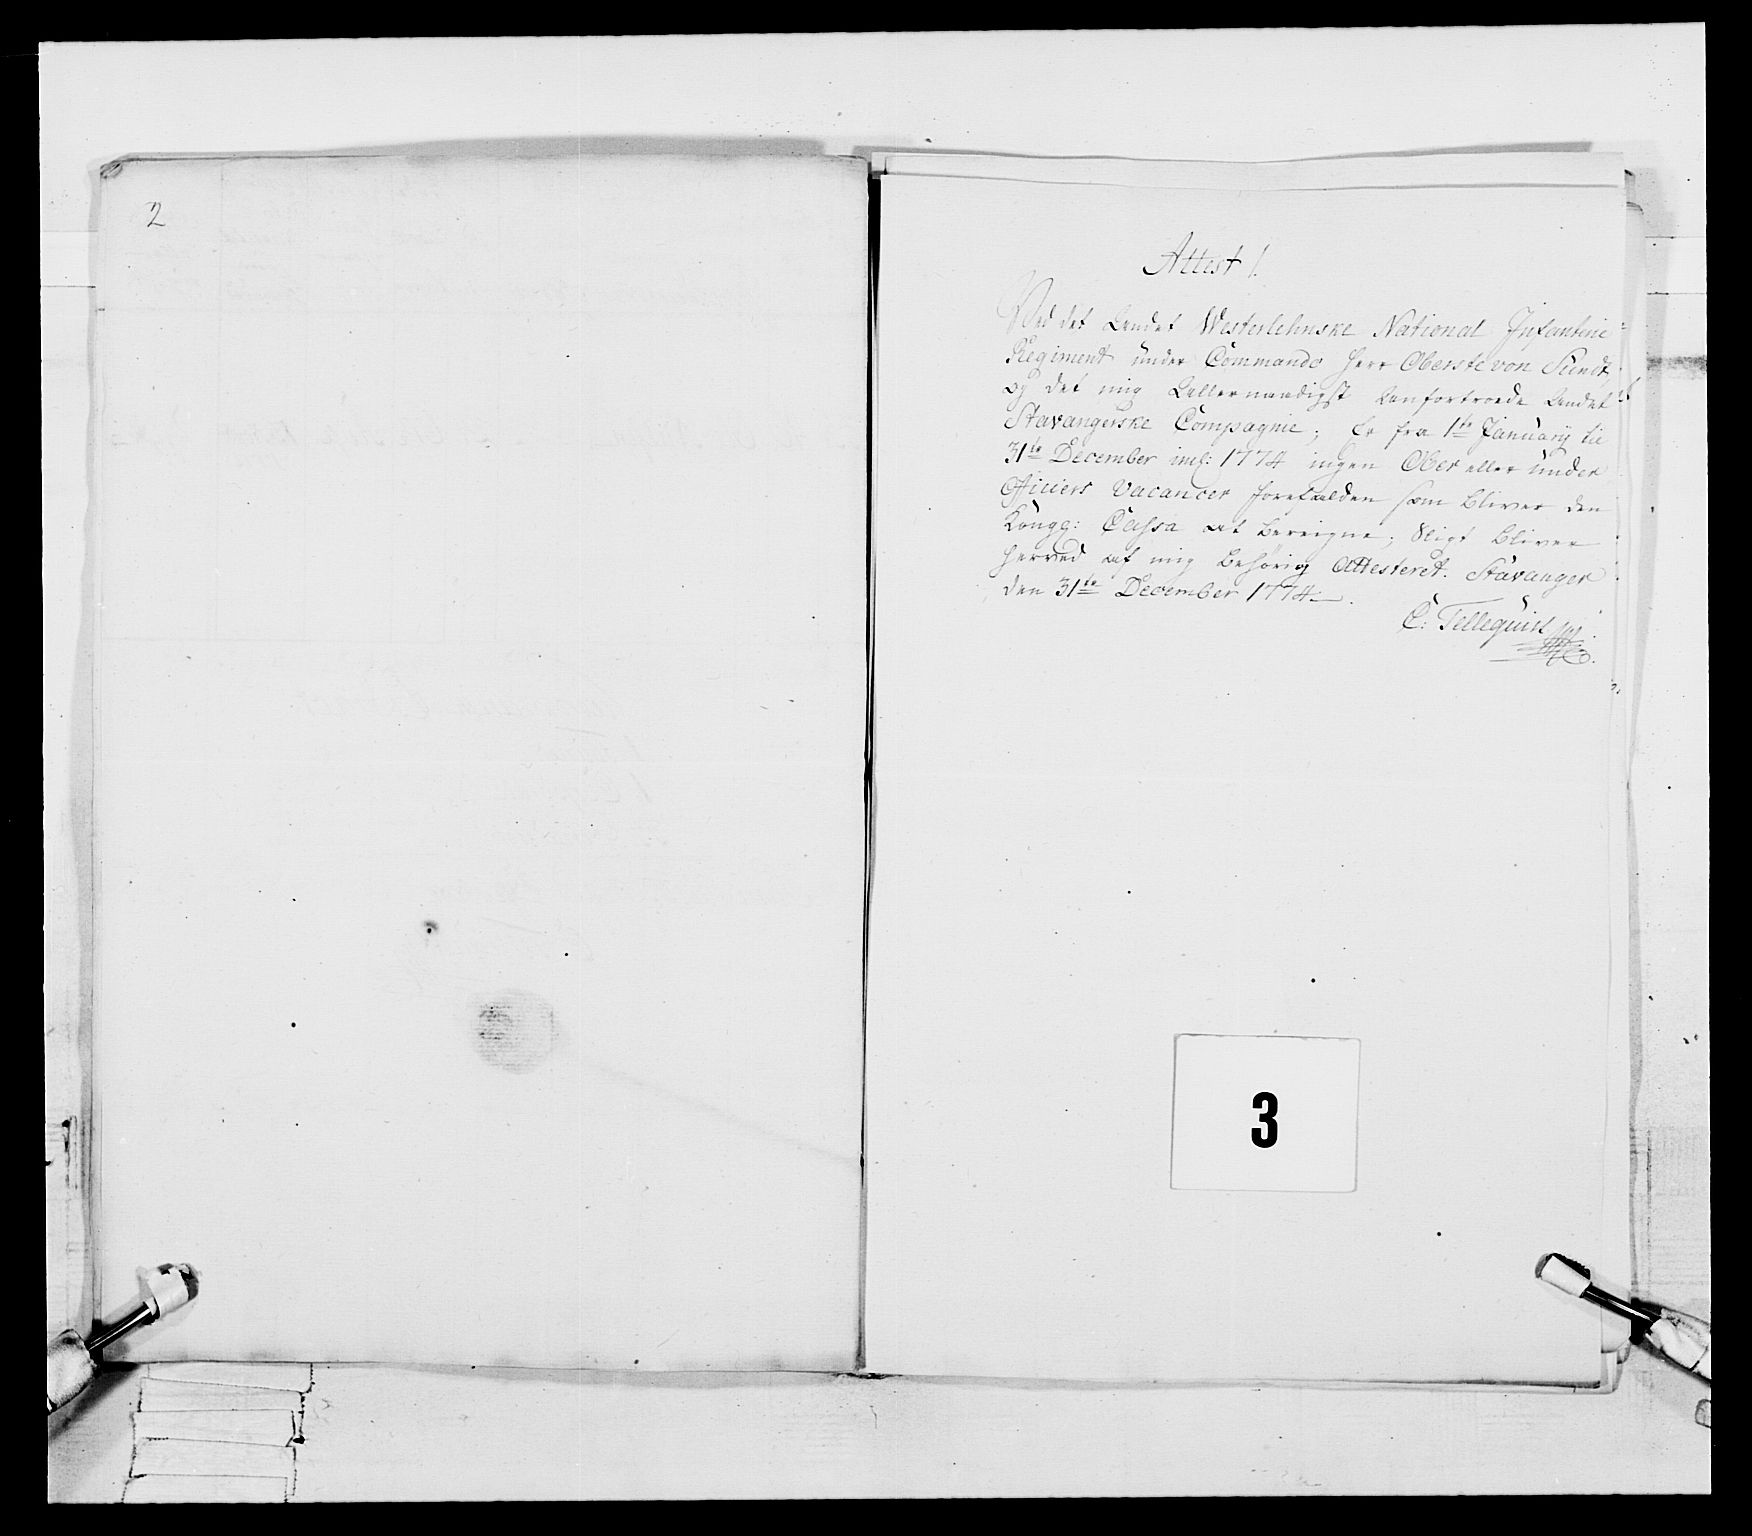 2
Attest 1.
Ved det Andet Westerlehnske National Infanterie
Regiment under Commando Herr Oberste von Sundt,
og det mig Allernaadigst Anfortroede Andet
Stavangerske Compagnie; Er fra 1te January til
31te December incl: 1774 ingen Ober eller under
Officiers Vacancer forefalden som bliver den
Kongl: Cassa at bereigne; Sligt bliver
herved af mig behörig Attesteret. Stavanger
den 31te December 1774.
C: Tellequist
3